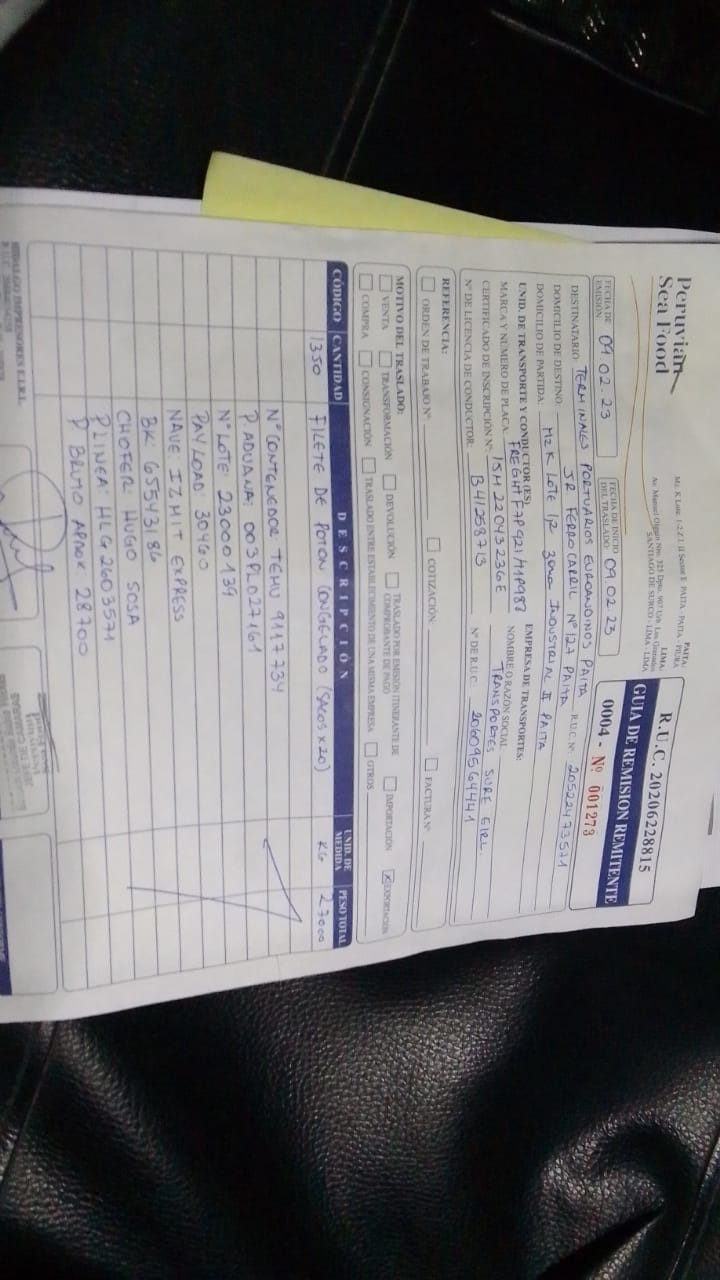 Peruvian
Sea Food
PAITA:
Mz. K Lote. 1-2 Z.I. II Sector E PAITA - PAITA - PIURA
LIMA
Av. Manuel Olguin Nro. 325 Dpto. 907 Urb. Los Granados
SANTIAGO DE SURCO - LIMA - LIMA
R.U.C. 20206228815
GUIA DE REMISION REMITENTE
0004 - Nº 001273
FECHA DE EMISIÓN 09 02 23
FECHA DE INICIO DEL TRASLADO: 09 02 23
DESTINATARIO: TERMINALES PORTUARIOS EUROANDINOS PAITA R.U.C. Nº: 20522473571
DOMICILIO DE DESTINO: JR FERROCARRIL Nº 127 PAITA
DOMICILIO DE PARTIDA: MZ K LOTE 1/2 ZONA INDUSTRIAL II PAITA
UNID. DE TRANSPORTE Y CONDUCTOR (ES) EMPRESA DE TRANSPORTES:
MARCA Y NÚMERO DE PLACA: FREGHT NOMBRE O RAZÓN SOCIAL
CERTIFICADO DE INSCRIPCIÓN Nº: 15M22043236E TRANSPORTES SURE EIRL
Nº DE LICENCIA DE CONDUCTOR: B41258713 Nº DE R.U.C. 20609564441
REFERENCIA:
ORDEN DE TRABAJO Nº COTIZACIÓN: FACTURA Nº
MOTIVO DEL TRASLADO:
VENTA TRANSFORMACIÓN DEVOLUCIÓN TRASLADO POR EMISIÓN ITINERANTE DE COMPROBANTE DE PAGO IMPORTACIÓN X EXPORTACIÓN
COMPRA CONSIGNACIÓN TRASLADO ENTRE ESTABLECIMIENTO DE UNA MISMA EMPRESA OTROS
CÓDIGO CANTIDAD DESCRIPCIÓN UNID. DE MEDIDA PESO TOTAL
1350 FILETE DE POTON CONGELADO (SACOS X 20) KG 27000
Nº CONTENEDOR TEMU 9117734
P. ADUANA: 003PL027161
Nº LOTE: 23000139
PAYLOAD: 30460
NAVE: IZMIT EXPRESS
BK: 65543186
CHOFER: HUGO SOSA
P LINEA: HLG2603571
P BRUTO APROX 28700